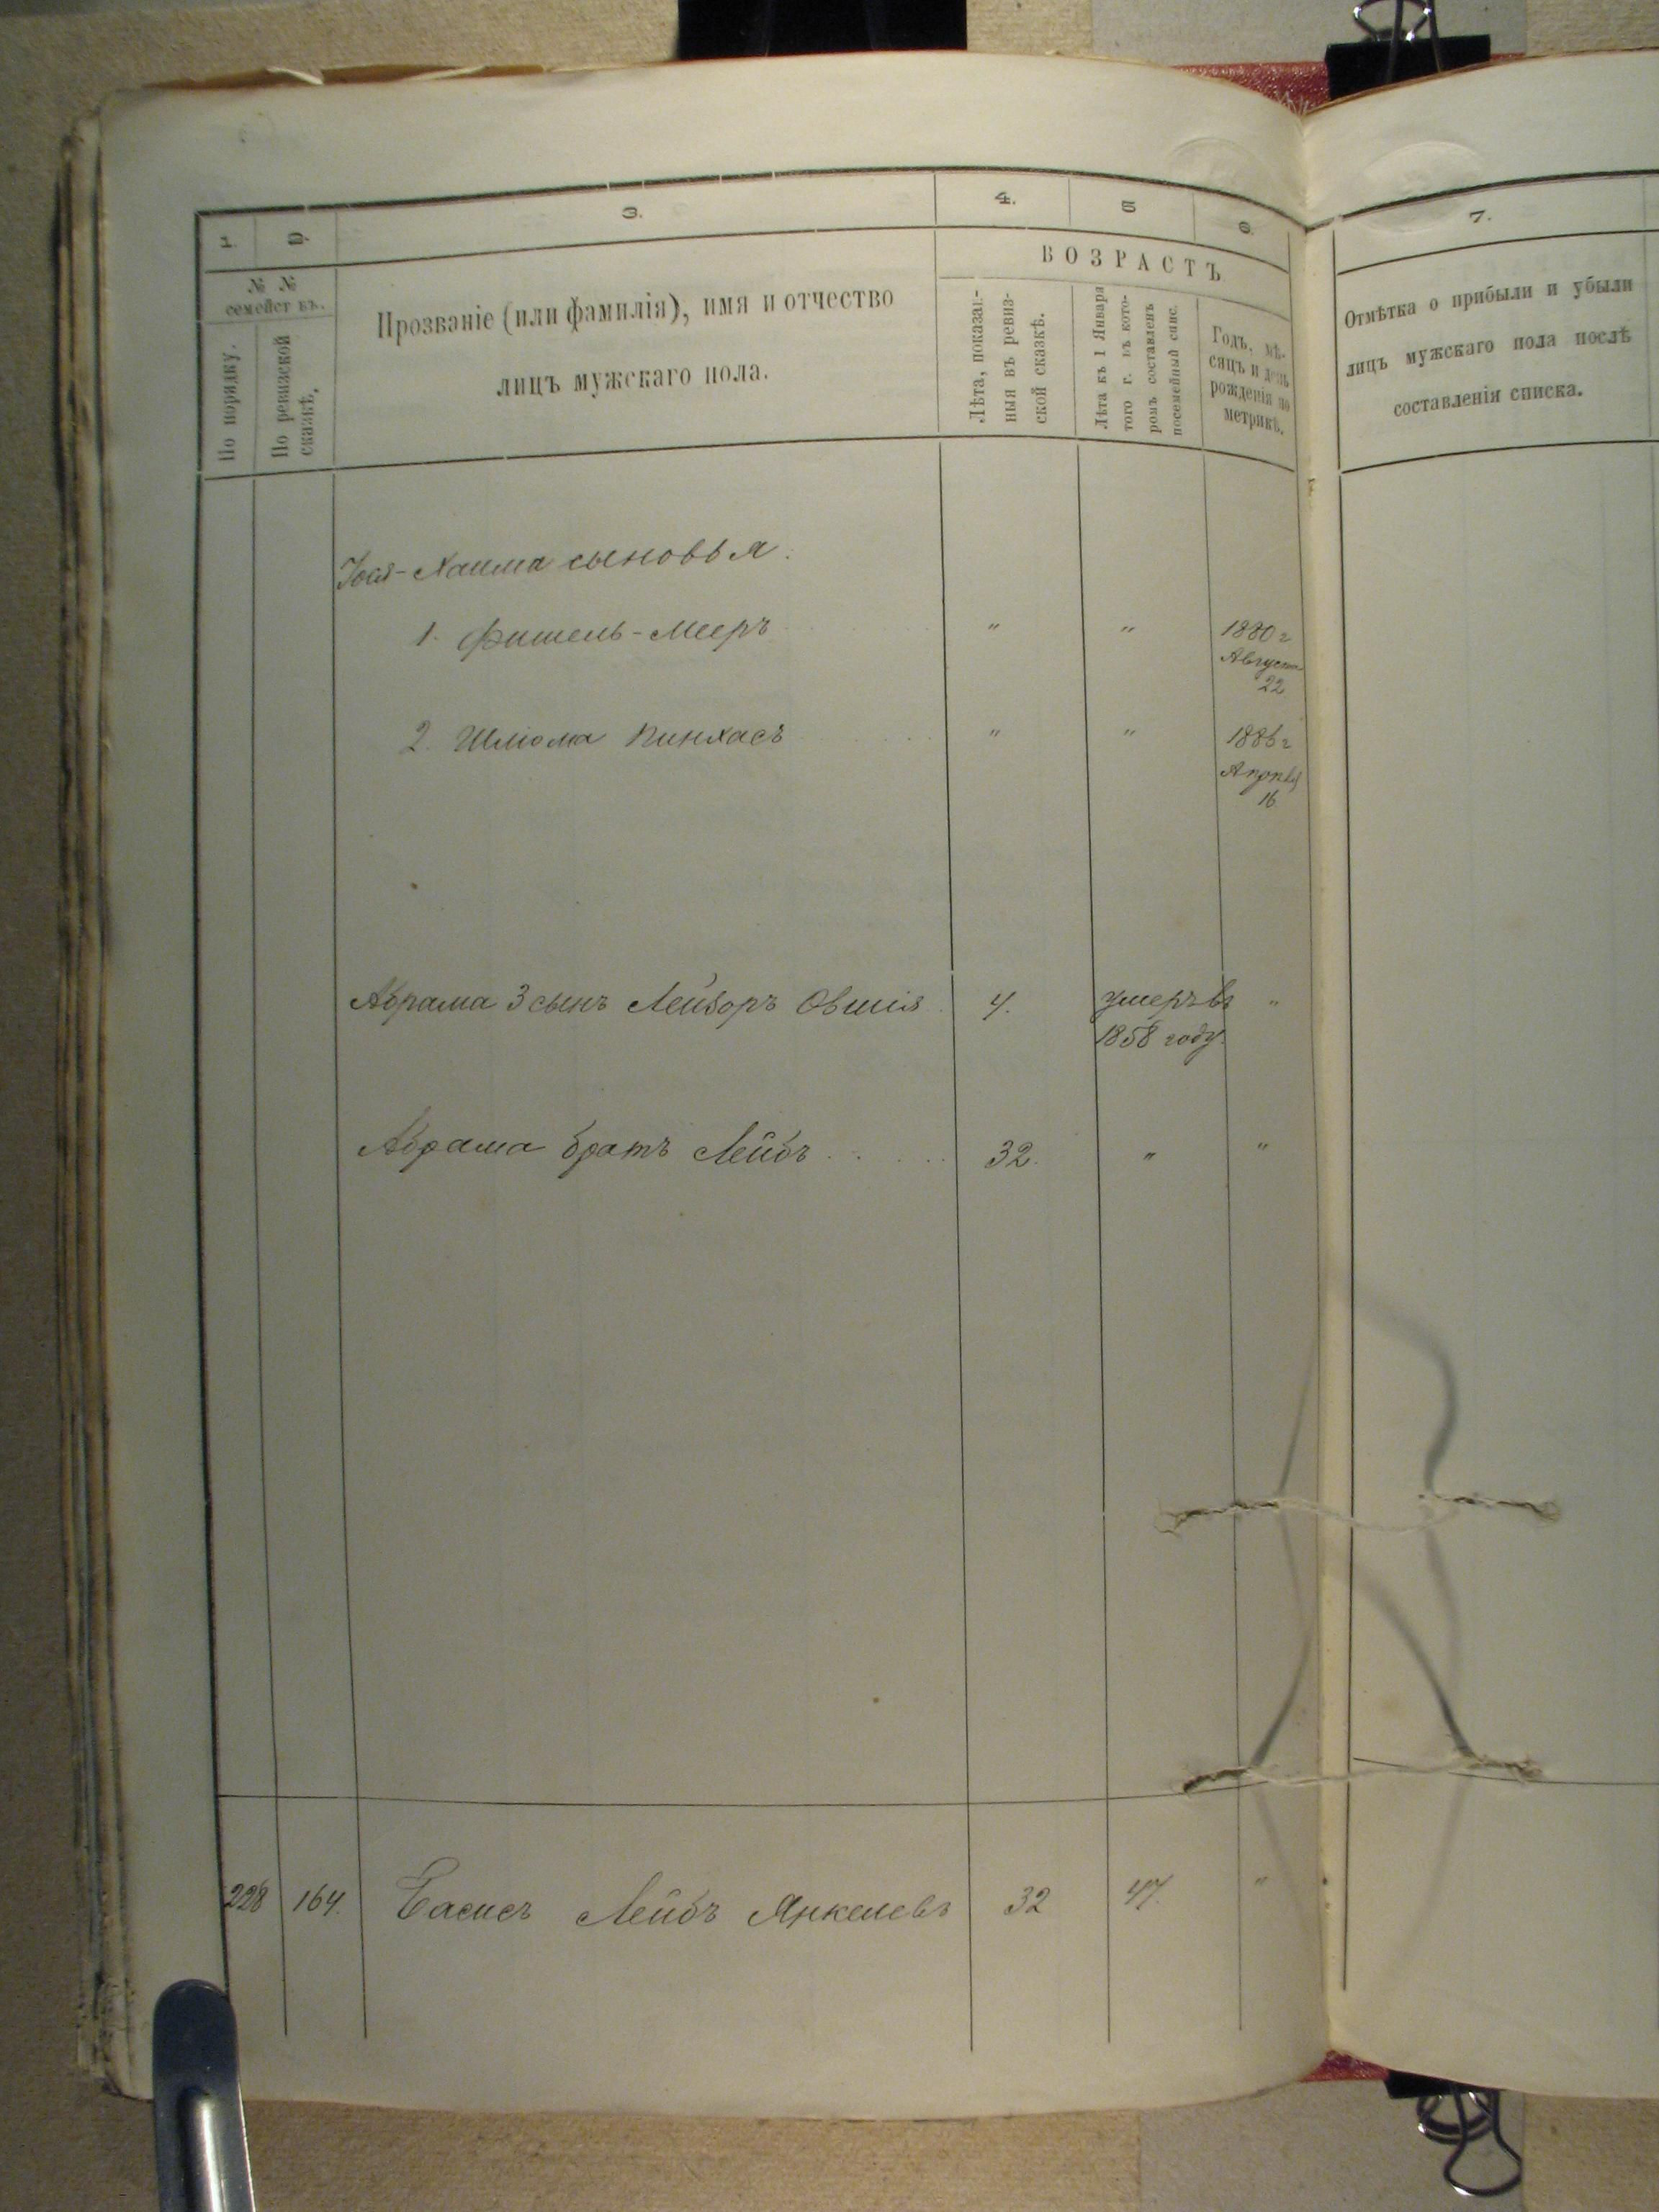 1. 2. 3. 4. 5 6. 7.
№ №
семейст въ.
По порядку.
По ревизской
сказкѣ.
Прозваніе (или фамилія), имя и отчество
лицъ мужскаго пола.
ВОЗРАСТЪ
Лѣта, показан-
ныя въ ревиз-
ской сказкѣ.
Лѣта къ 1 Января
того г. въ кото-
ромъ составленъ
посемейный спис.
Годъ, мѣ-
сяцъ и день
рожденія по
метрикѣ.
Отмѣтка о прибыли и убыли
лицъ мужскаго пола послѣ
составленія списка.
Хаима сыновья
1. Фишель-Мееръ " " 1880 г
Августа
22
2. Шліома Пинхасъ " " 1886 г
Апрѣля
16
Абрама 3 сынъ Лейзоръ Овшія 4. умеръ въ "
1858 году.
Абрама братъ Лейбъ 32. " "
228 164. Басисъ Лейбъ Янкелевъ 32 47. "